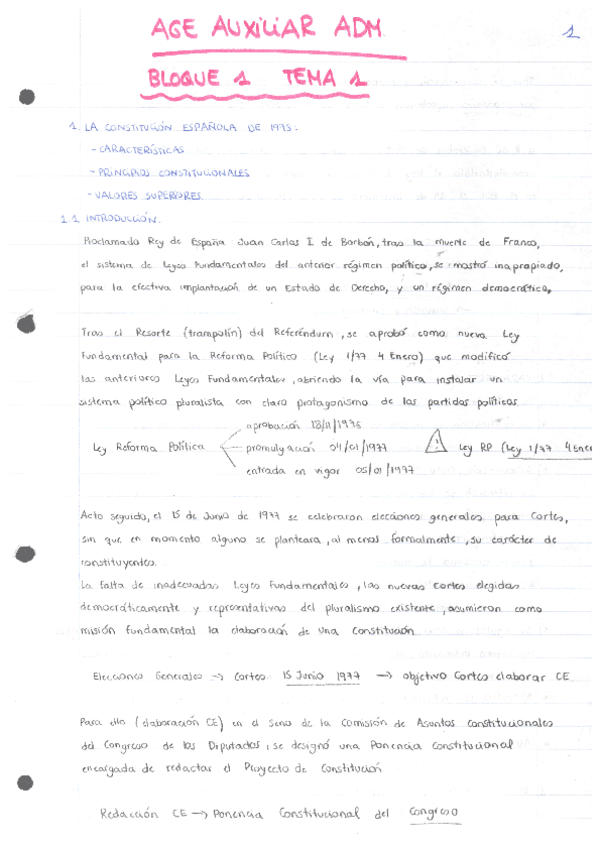 AGE AUXILIAR ADM
1
BLOQUE 1 TEMA 1
1. LA CONSTITUCIÓN ESPAÑOLA DE 1975:
- CARACTERÍSTICAS
- PRINCIPIOS CONSTITUCIONALES
- VALORES SUPERIORES
1.1 INTRODUCCIÓN.
Proclamado Rey de España Juan Carlos I de Borbón, tras la muerte de Franco,
el sistema de Leyes Fundamentales del anterior régimen político, se mostró inapropiado,
para la efectiva implantación de un Estado de Derecho, y un régimen democrático.
Tras el Resorte (trampolín) del Referéndum, se aprobó como nueva Ley
Fundamental para la Reforma Político (Ley 1/77 4 Enero) que modificó
las anteriores Leyes Fundamentales, abriendo la vía para instalar un
sistema político pluralista con claro protagonismo de los partidos políticos
aprobación 18/11/1976
Ley Reforma Política promulgación 04/01/1977 ! Ley RP (Ley 1/77 4 Ener
entrada en vigor 05/01/1977
Acto seguido, el 15 de Junio de 1977 se celebraron elecciones generales para Cortes,
sin que en momento alguno se planteara, al menos formalmente, su carácter de
constituyentes.
La falta de inadecuadas Leyes Fundamentales, las nuevas cortes elegidas
democráticamente y representativas del pluralismo existente, asumieron como
misión fundamental la elaboración de una Constitución
Elecciones Generales → Cortes 15 Junio 1977 → objetivo Cortes elaborar CE
Para ello (elaboración CE) en el seno de la Comisión de Asuntos constitucionales
del Congreso de los Diputados, se designó una Ponencia Constitucional
encargada de redactar el Proyecto de Constitución
Redacción CE → Ponencia Constitucional del Congreso